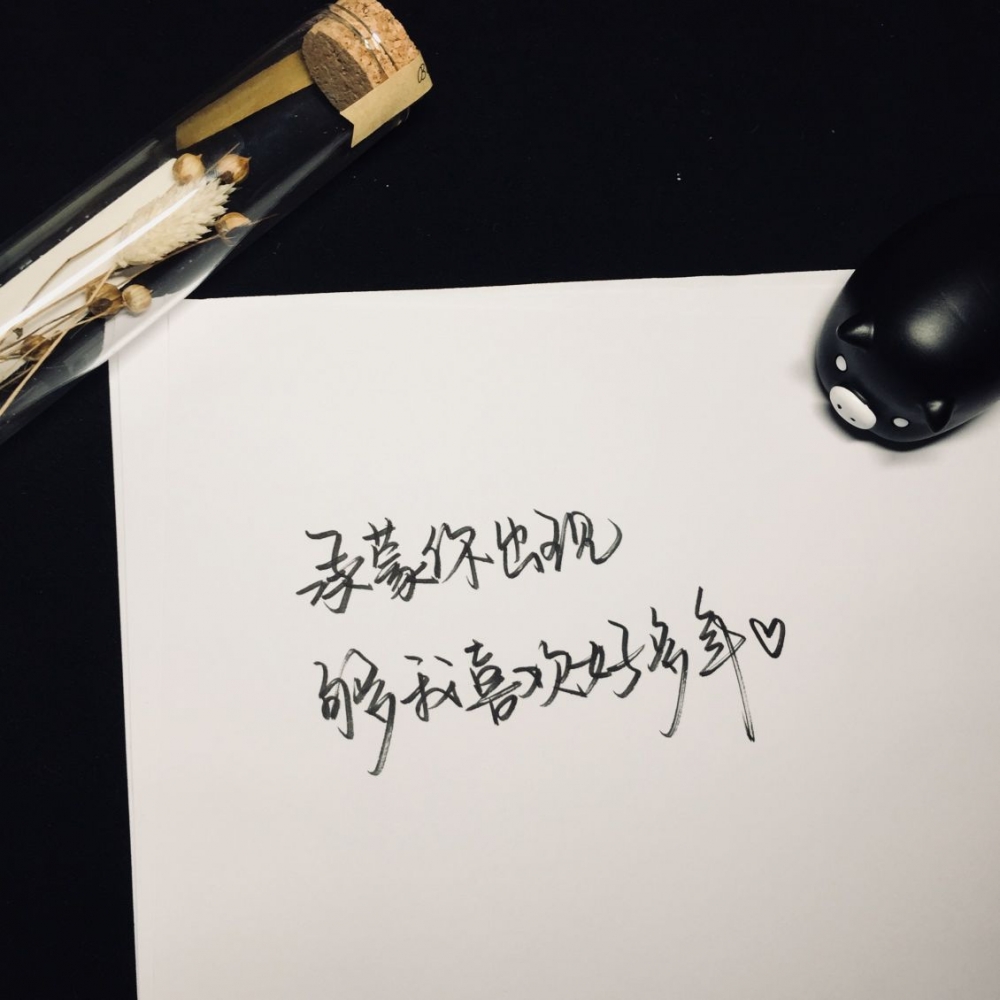 承蒙你出现
够我喜欢好多年♡